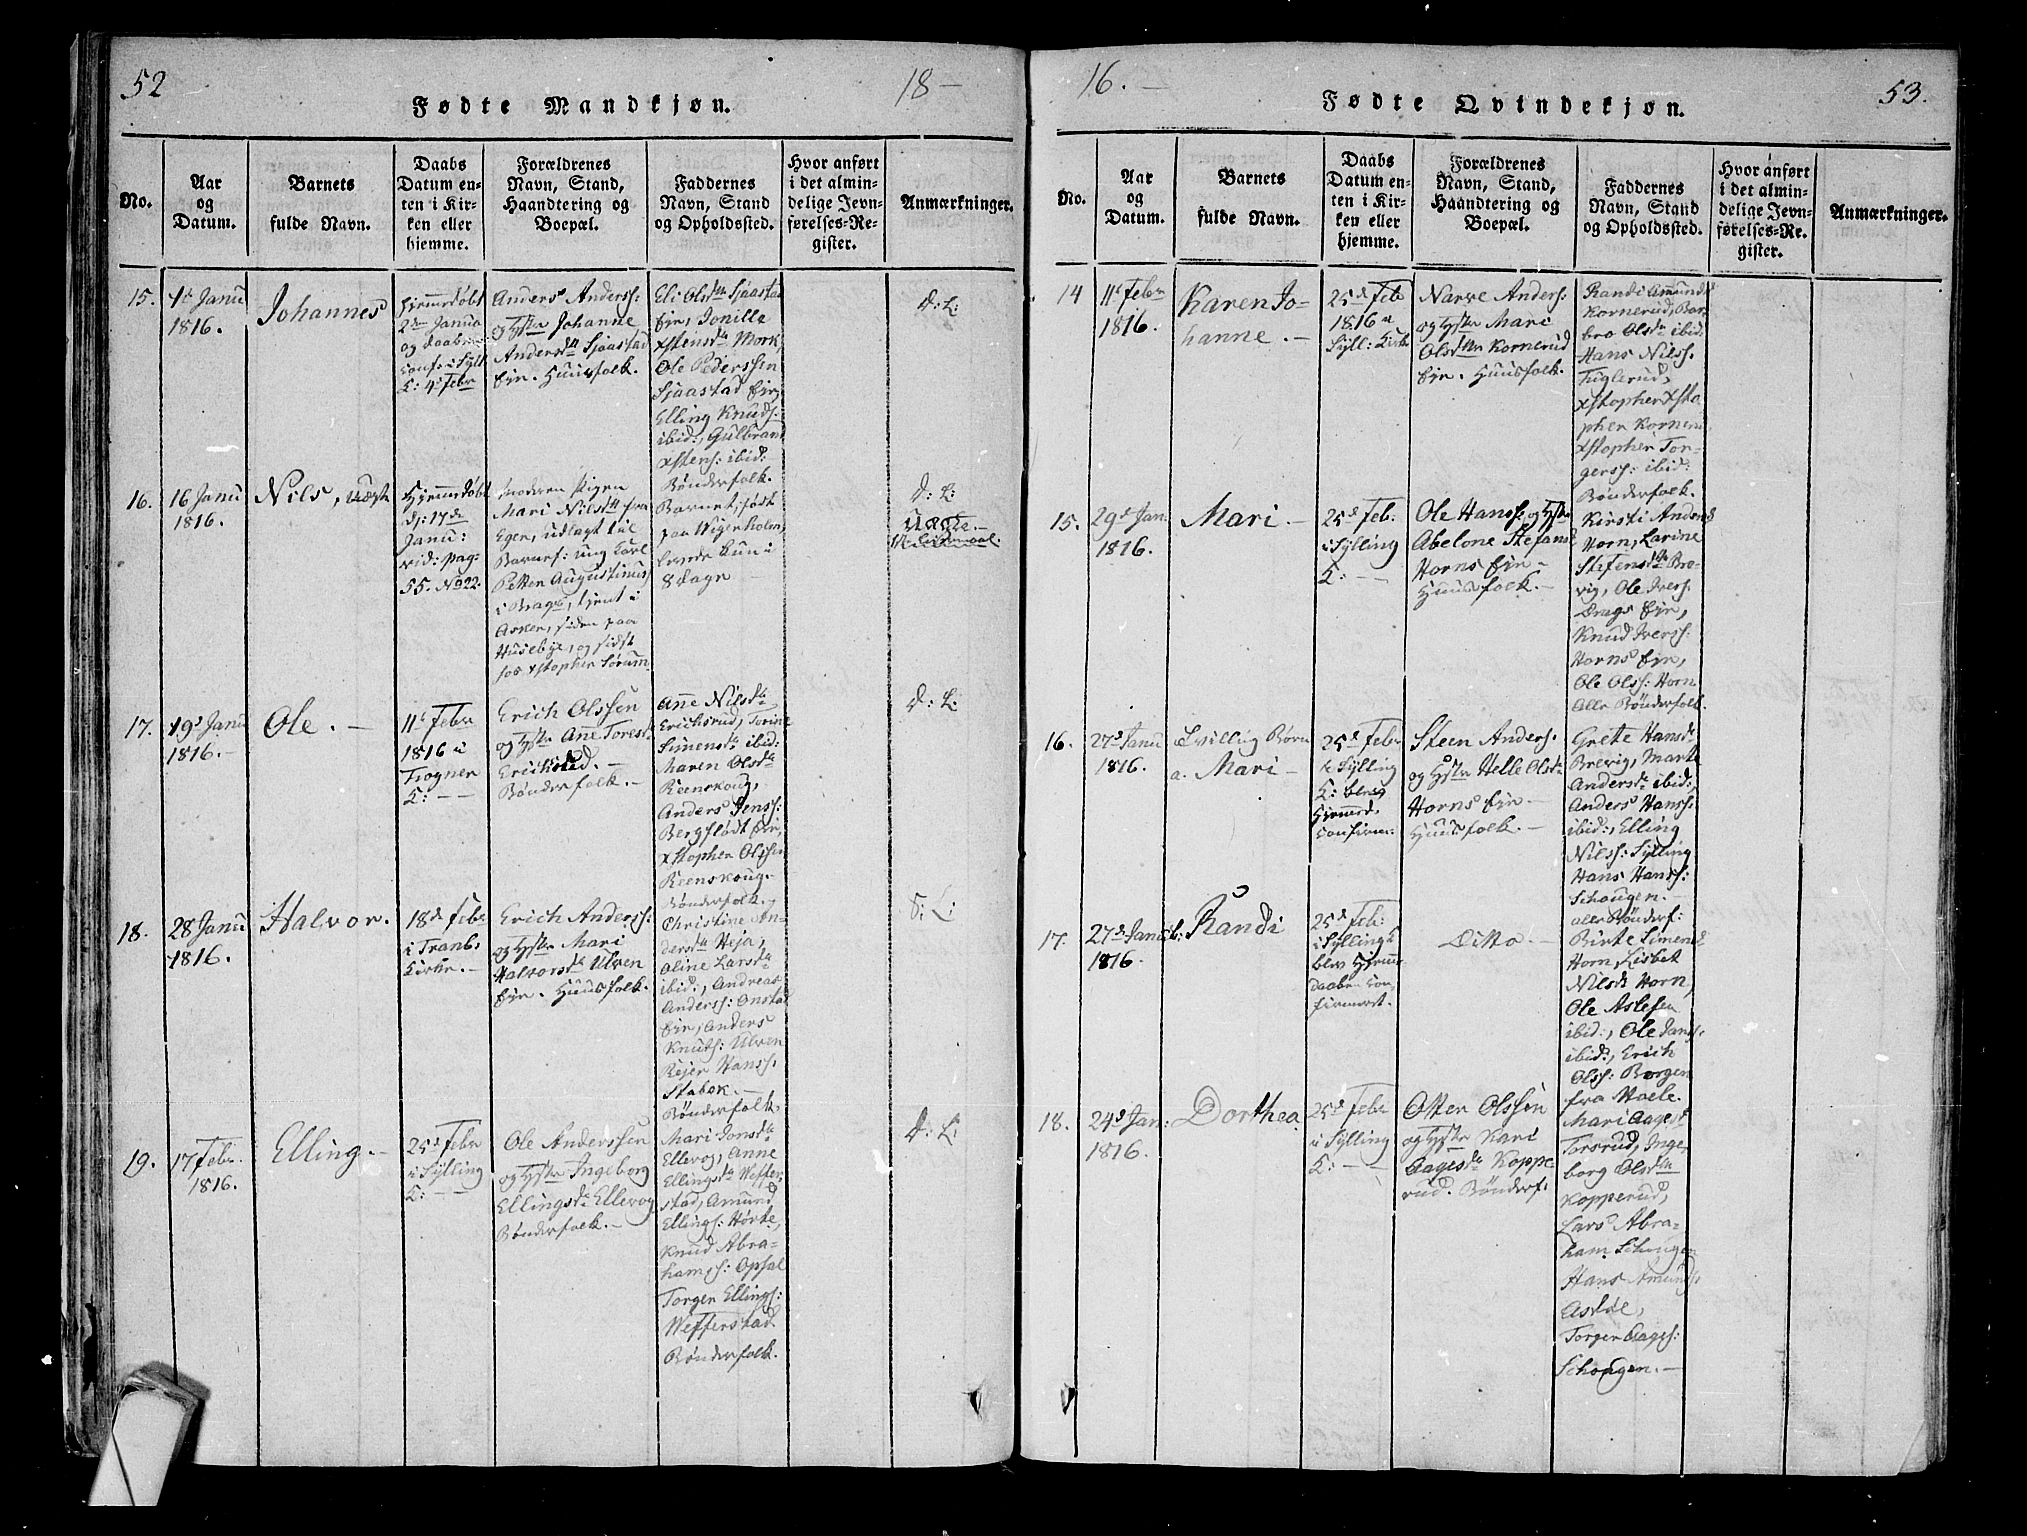 52
18 —
Fødte Mandkjøn.
No.
Aar
og
Datum.
Barnets
fulde Navn.
Daabs
Datum en-
ten i Kir-
ken eller
hjemme.
Forældrenes
Navn, Stand,
Haandtering og
Boepæl.
Faddernes
Navn, Stand
og Opholdssted.
Hvor anført
i det almin-
delige Jevn-
førelses-Re-
gister.
Anmærkninger.
15.
1816.
Johannes
Hjemmedøbt
2den Janua
og daaben
conf: i Syll
K: 4de Febr
Anders Anderss:
og Hstr Johanne
Andersdtr Sjaastad
Eir. Huusfolk.
Eli Olsdtr Sjaastad
Eir, Jonille
xstensdtr Mork,
Ole Pederssen
Sjaastad Eir,
Elling Knuds:
ibid:, Gulbrand
xstens: ibid:
Bønderfolk.
D: L:
16.
16 Janu
1816.
Nils, uægte
Hjemmedøbt
d: 17de
Janu:
vid: pag:
55. No 22.
Moderen Pigen
Mari Nilsdtr fra
Eger, udlagt til
Barnef: ung Karl
Petter Augustinuss:
i Brage, tjent i
Asker, siden paa
Husebye, og sidst
hos xstopher Sørum.
Barnet, født
paa Wigerholm,
levede kun i
8 dage —
D: L:
Uægte. —
17.
19d Janu
1816. —
Ole. —
11te Febr
1816 i
Frogner
K: — —
Erich Olssen
og Hstr Ane Toresd:
Erichsrud. —
Bønderfolk. —
Anne Nilsdtr
Erichsrud, Torine
Simensdtr ibid:
Maren Olsdtr
Reenskoug,
Anders Jenss:
Bergflødt Eir,
xstopher Olssen
Reenskoug. —
Bønderfolk. —
D: L:
18.
28 Janu
1816.
Halvor.
18d Febr
i Tranb:
Kirke. —
Erich Anderss:
og Hstr Mari
Halvorsdtr Ulven
Eir. Huusfolk.
Christine An-
dersdtr Heja,
Oline Larsdtr
ibid:, Andreas
Anderss: Onstad
Eir, Anders
Knuts: Ulven
Rejer Hanss:
Stabek. —
Bønderfolk.
19.
17 Febr.
1816.
Elling. —
25d Febr
i Sylling
K: — —
Ole Anderssen
og Hstr Ingeborg
Ellingsdtr Ellevog
Bønderfolk. —
Mari Jonsdtr
Ellevog, Anne
Ellingsdtr Weffer-
stad, Amund
Ellings: Hørte,
Knud Abra-
hamss: Opsal
Torger Ellings:
Wefferstad
Bønderfolk.
D: L:
16. —
53.
Fødte Qvindekjøn.
No.
Aar
og
Datum.
Barnets
fulde Navn.
Daabs
Datum en-
ten i Kir-
ken eller
hjemme.
Forældrenes
Navn, Stand,
Haandtering og
Boepæl.
Faddernes
Navn, Stand
og Opholdssted.
Hvor anført
i det almin-
delige Jevn-
førelses-Re-
gister.
Anmærkninger.
14
11te Febr
1816.
Karen Jo-
hanne. —
25d Feb
1816 i
Syll: Kirke
Narve Anders:
og Hstr Mari
Olsdtr Kornerud
Eir. Huusfolk.
Randi Amundsd
Kornerud, Bar-
bro Olsdtr ibid:
Hans Nilss:
Fuglerud,
xstopher xsto
pher Korneru
xstopher Tor-
gerss: ibid:
Bønderfolk.
15.
29d Jan.
1816.
Mari —
25d Feb:
i Sylling
K: — —
Ole Hanss: og Hstr
Abelone Stefansd
Horns Eir —
Huusfolk. —
Kirsti Andersd
Horn, Larine
Stefensdtr Bre-
vig, Ole Iverss:
Drags Eir,
Knud Iverss:
Horns Eir,
Ole Olss: Horn
Alle Bønderfolk.
16.
27d Janu
1816.
Tvilling Børn
a. Mari —
25d Febr
i Sylling
K: blev
Hjemmed.
confirm:
Steen Anders:
og Hstr Helle Olsdtr
Horns Eir —
Huusfolk. —
Grete Hansd:
Brevig, Marte
Andersdtr ibid:,
Anders Hanss:
ibid:, Elling
Nilss: Sylling
Hans Hanss:
Schougen.
alle Bønderf:
17.
27d Janu
1816.
b: Randi
25d Feb:
i Sylling K
blev Hjemme
Daaben con
firmert.
Ditto. —
Birte Simensd
Horn, Lisbet
Nilsdtr Horn,
Ole Aslefen
ibid:, Ole Janss:
ibid:, Erich
Olss: Borgen
fra Hole.
18.
24d Jan:
1816.
Dorthea
25d Febr
i Sylling
K: — —
Otter Olssen
og Hstr Kari
Aagesdtr Koppe
rud. Bønderf:
Mari Aagesd
Torsrud, Inge-
borg Olsdtr
Kopperud,
Lars Abra-
ham Schougen
Hans Amunds:
Torger Aages:
Schougen. —